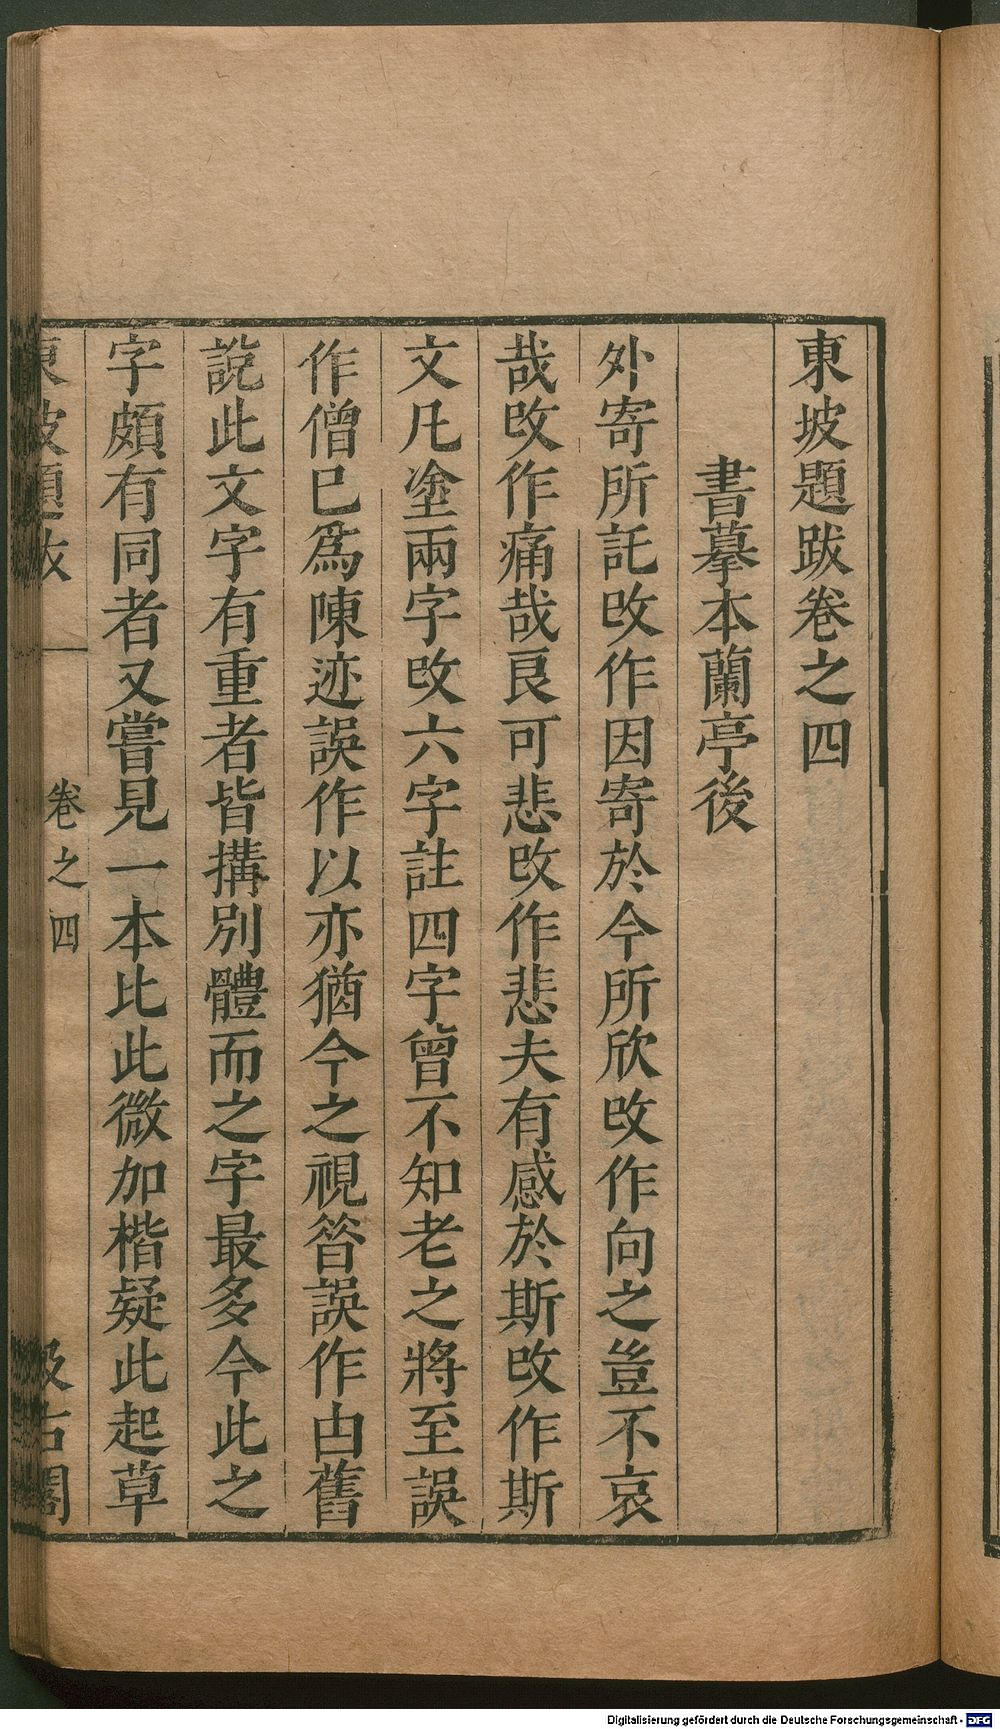 東坡題跋卷之四
書摹本蘭亭後
外寄所託改作因寄於今所欣改作向之豈不哀
哉改作痛哉良可悲改作悲夫有感於斯改作斯
文凡塗兩字改六字註四字曾不知老之將至誤
作僧已爲陳迹誤作以亦猶今之視昝誤作㠯舊
說此文字有重者皆搆別體而之字最多今此之
字頗有同者又嘗見一本比此微加楷疑此起草
東坡題跋 卷之四 汲古閣
Digitalisierung gefördert durch die Deutsche Forschungsgemeinschaft - DFG